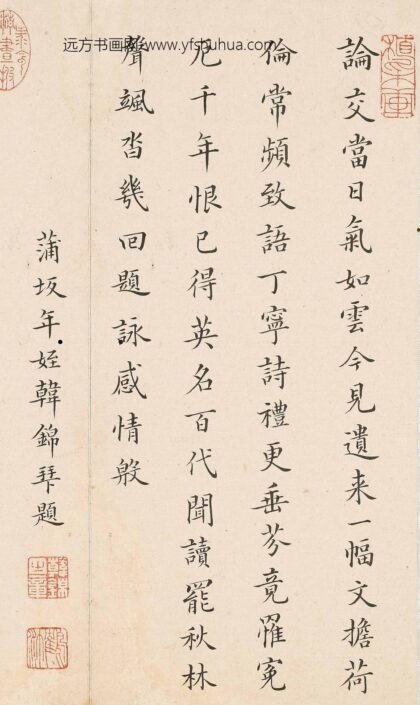 远方书画网www.yfshuhua.com
論交當日氣如雲今見遺来一幅文擔荷
倫常頻致語丁寧詩禮更垂芬竟罹冤
厄千年恨已得英名百代聞讀罷秋林
聲颯沓幾回題詠感情殷
蒲坂年姪韓錦題